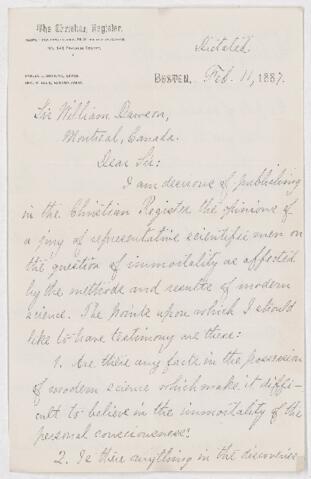 The Christian Register.
Dictated.
BOSTON, Feb. 11, 1887.
Sir William Dawson,
Montreal, Canada.
Dear Sir:
I am desirous of publishing
in the Christian Register the opinions of
a jury of representative scientific men on
the question of immortality as affected
by the methods and results of modern
science. The points upon which I should
like to have testimony are these:
1. Are there any facts in the possession
of modern science which make it diffi-
cult to believe in the immortality of the
personal consciousness?
2. Is there anything in the discoveries